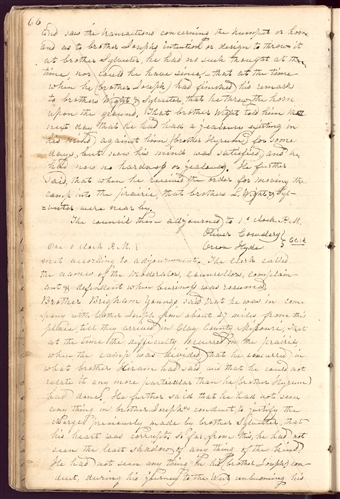 66
and saw the transactions concerning the trumpet or horn
and as to brother Joseph's intention or design to throw it
at brother Sylvester, he had no such thought at the
time, nor could he have since, that at the time
when he (brother Joseph) had finished his remarks
to brothers Wight & Sylvester, that he threw the horn
upon the ground. That brother Wight told him the
next day that he had had a jealousy existing in
his mind, against him (brother Hyrum) for some
days, but says his mind was satisfied, and he
has now no hardness or jealousy. He further
said, that when he received the order for moving the
camp into the prairie, that brothers L. Wight & Syl-
vester were near by.
The council then adjourned to 1 o clock P.M.
Oliver Cowdery
Orson Hyde
Clerks
One o clock P.M.
met according to adjournment. The clerk called
the names of the moderator, counsellors, complain
ant & defendant when business was resumed.
Brother Brigham Young said that he was in com-
pany with brother Joseph from about 27 miles from this
place till they arrived in Clay County Missouri, that
at the time the difficulty occurred in the prairie,
when the camp was divided, that he concurred in
what brother Hiram had said, and that he could not
relate to any more particulars than he (brother Hyrum)
had done. He further said that he had not seen
any thing in brother Joseph's conduct, to justify the
charges previously made by brother Sylvester, that
his heart was corrupt, so far from this, he had not
seen the least shadow of any thing of this kind.
He had not seen any thing in his, brother Joseph's con-
duct, during his journey to the West unbecoming his